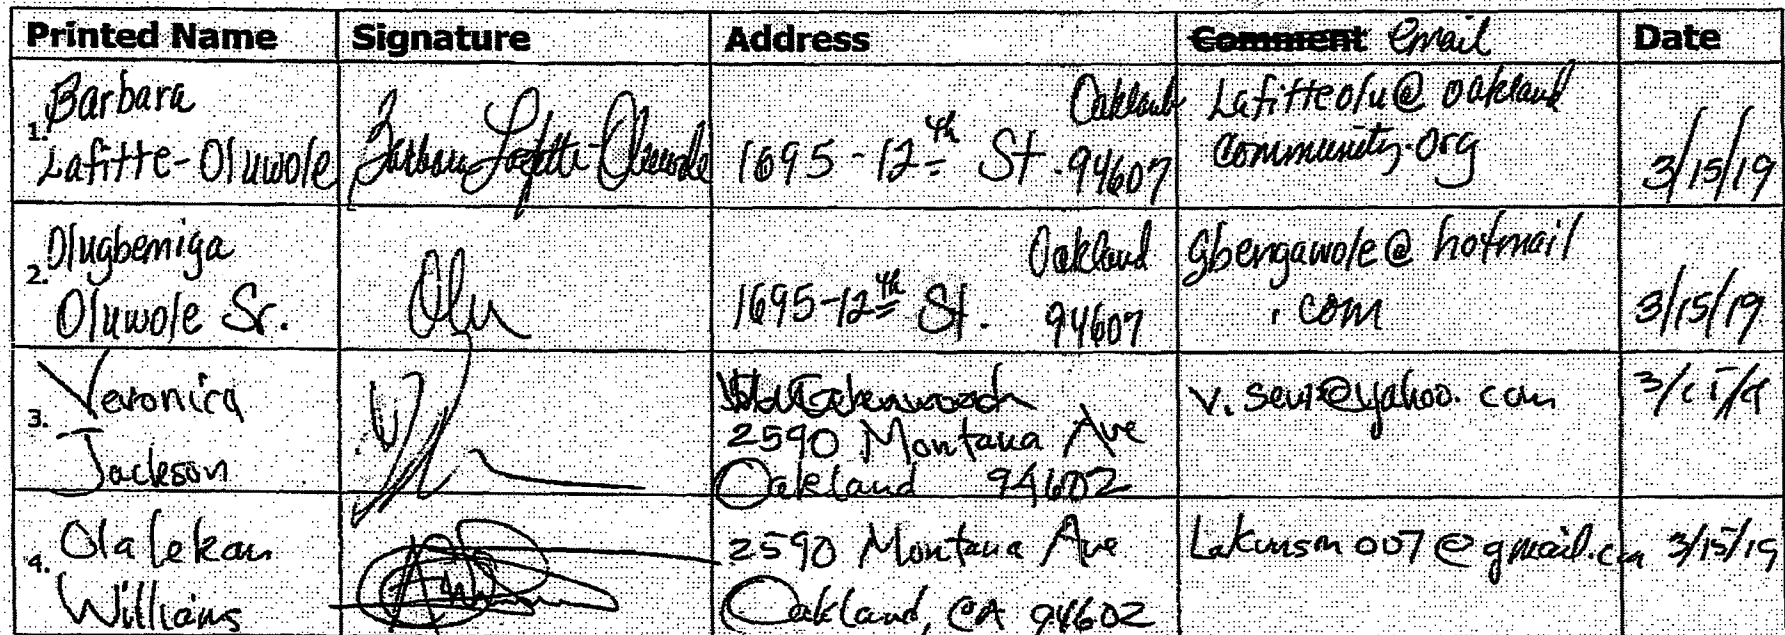 Printed Name Signature Address Comment email Date
1. Barbara Lafitte-Oluwole
Barbara Lafitte-Oluwole
1695-12th St. Oakland 94607
Lafitteolu@oakland
community.org
3/15/19
2. Olugbemiga
Oluwole Sr.
Olu
1695-12th St. Oakland 94607
gbengawole@hotmail
.com
3/15/19
3. Veronica
Jackson
2590 Montana Ave
Oakland 94602
3/15/19
4. Olalekan
Williams
2590 Montana Ave
Oakland, CA 94602
3/15/19